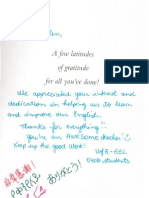 A few latitudes
of gratitude
for all you've done!
We appreciated your interest and
dedication in helping us to learn
and improve our English.
Thanks for everything!
You're an AWSome teacher!
Keep up the good work!
UofR-ESL
students
ありがとう!